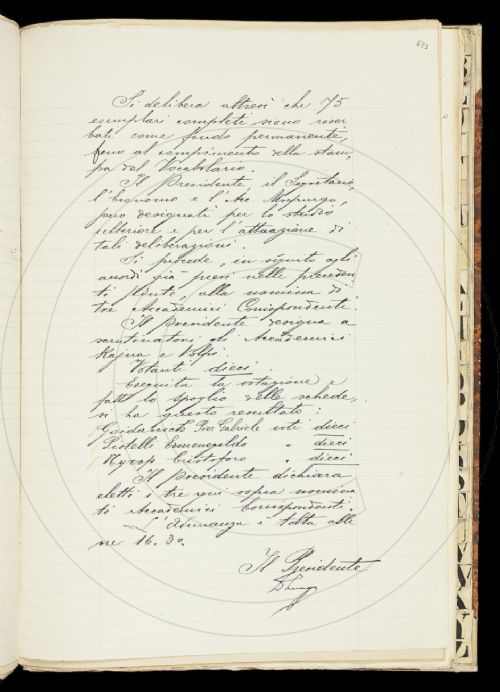 673
Si delibera altresì che 75
esemplari completi siano riser
bati come fondo permanente,
fino al compimento della stam-
pa del Vocabolario.
Il Presidente, il Segretario,
l'Economo e l'Acc. Morpurgo,
sono designati per lo studio
ulteriore e per l'attuazione di
tali deliberazioni.
Si procede, in seguito agli
accordi già presi nelle preceden
ti sedute, alla nomina di
tre Accademici Corrispondenti.
Il Presidente designa a
scrutinatori gli Accademici
Rajna e Volpi.
Votanti dieci.
Eseguita la votazione e
fatto lo spoglio delle schede,
si ha questo resultato:
Goidanich Pier Gabriele voti dieci
Pistelli Ermenegildo " dieci
Nyrop Cristoforo " dieci
Il Presidente dichiara
eletti i tre qui sopra nomina
ti Accademici Corrispondenti.
L'adunanza è tolta alle
ore 16.30.
Il Presidente